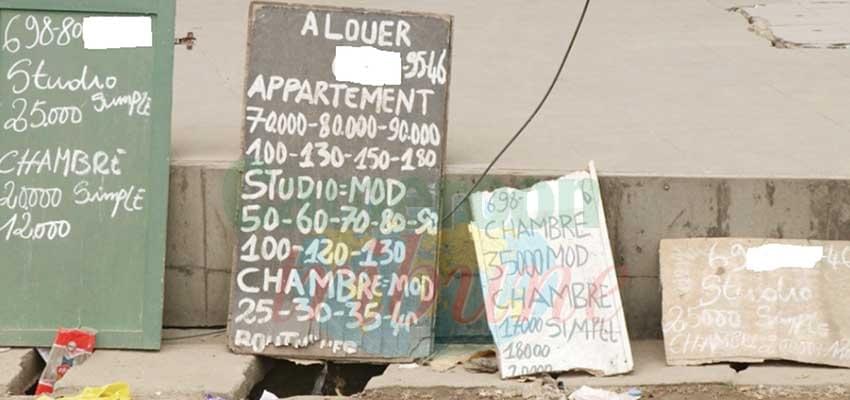 698-80
Studio
25.000 Simple
CHAMBRE
20000 Simple
12.000
A LOUER
-9546
APPARTEMENT
70.000-80.000-90.000
100-130-150-180
STUDIO=MOD
50-60-70-80-90
100-120-130
CHAMBRE=MOD
25-30-35-40
698-
CHAMBRE
35000 MOD
CHAMBRE
17000 SIMPLE
18000
698
Studio
25000 SIMPLE
CHAMBRE